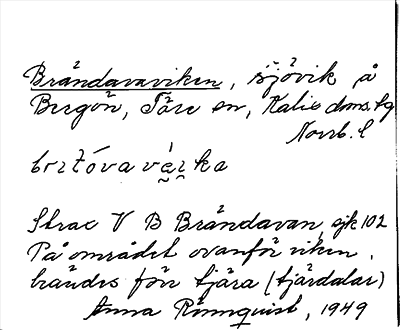 Brändavaviken, sjövik på
Bergön, Töre sn, Kalix doms.tg
Norrb. l
brztóva vérka
Strax V B Brändavan, sjk 102
På området ovanför viken,
brändes förr tjära (tjärdalar)
Anna Rönnquist, 1949